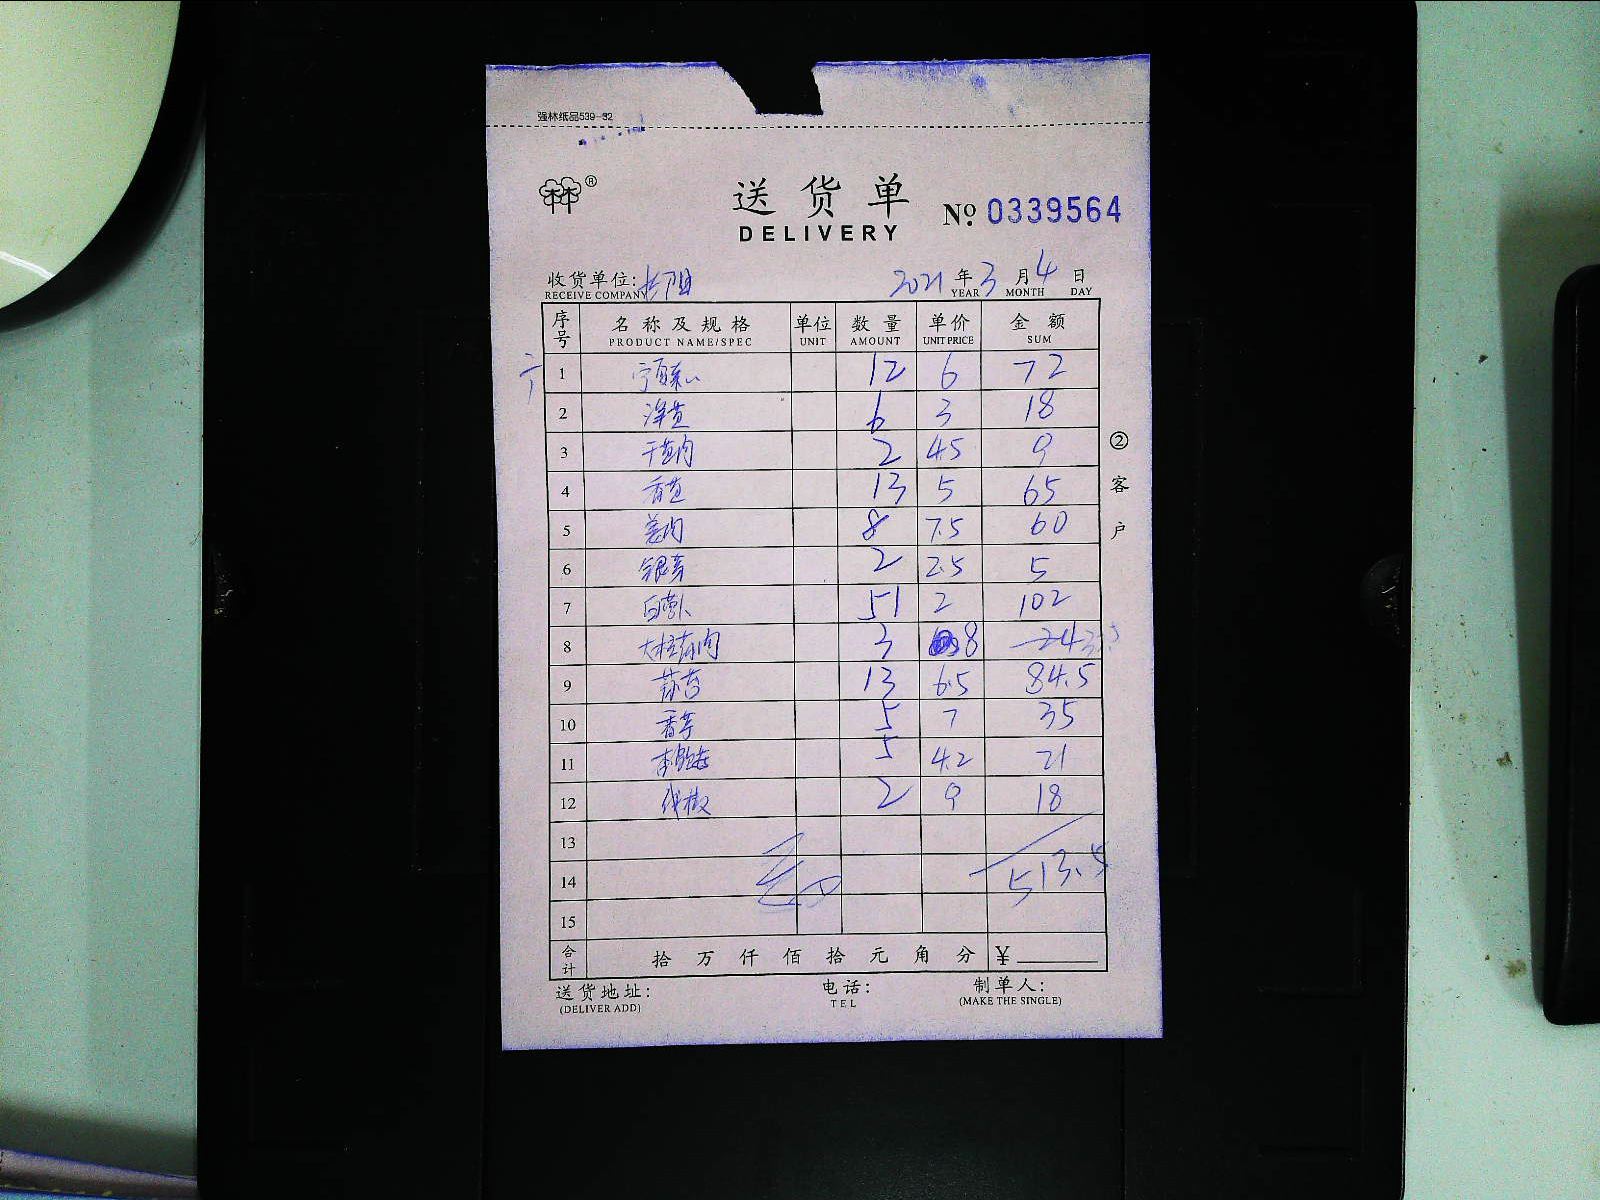 强林纸品539-32
®
送货单
DELIVERY
No. 0339564
收货单位: 长阳 2021 年 3 月 4 日
RECEIVE COMPANY YEAR MONTH DAY
序号 名称及规格 单位 数量 单价 金额
PRODUCT NAME/SPEC UNIT AMOUNT UNIT PRICE SUM
1 12 6 72
2 洋葱 6 3 18
3 干葱肉 2 4.5 9
4 香芹 13 5 65
5 姜肉 8 7.5 60
6 银芽 2 2.5 5
7 白萝卜 51 2 102
8 3 8 24
9 13 6.5 84.5
10 香芋 5 7 35
11 5 4.2 21
12 线椒 2 9 18
13
14 513.5
15
合计 拾 万 仟 佰 拾 元 角 分 ¥
送货地址: 电话: 制单人:
(DELIVER ADD) TEL (MAKE THE SINGLE)
② 客户